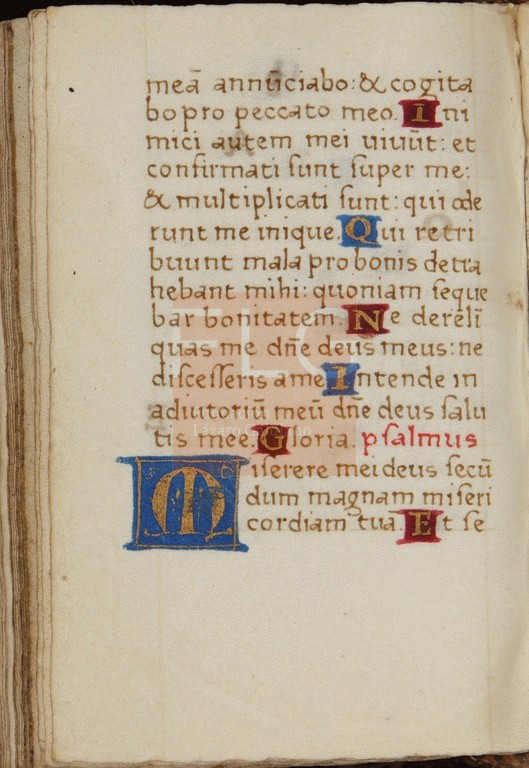 meā annūciabo: & cogita
bo pro peccato meo. Ini
mici autem mei uiuūt: et
confirmati sunt super me:
& multiplicati sunt: qui ode
runt me inique. Qui retri
buunt mala pro bonis detra
hebant mihi: quoniam seque
bar bonitatem. Ne derelī
quas me dn̄e deus meus: ne
discesseris a me Intende in
adiutoriū meū dn̄e deus salu
tis mee. Gloria. psalmus
Miserere mei deus secū
dum magnam miseri
cordiam tuā. Et se